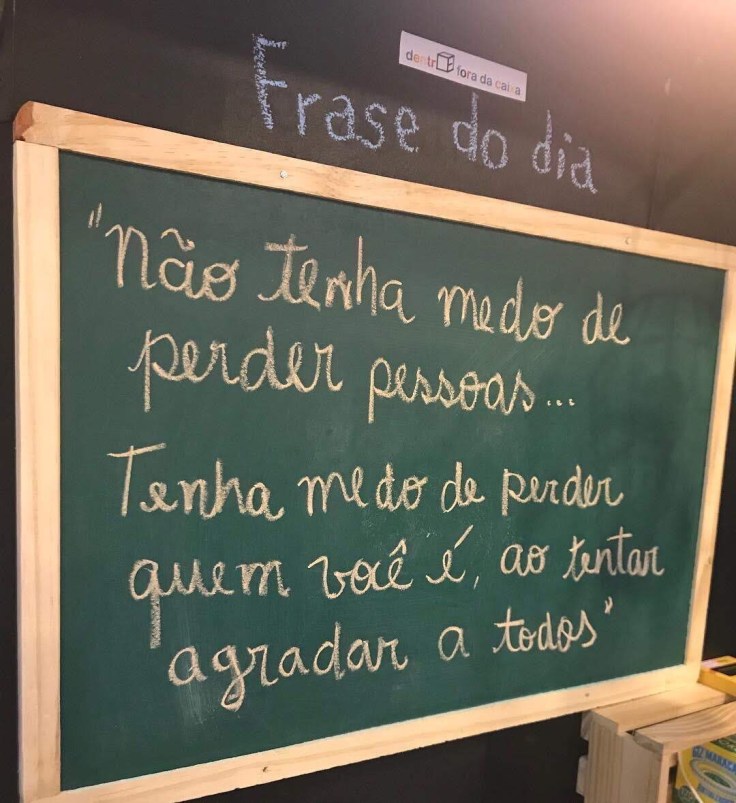 dentro fora da caixa
Frase do dia
"Não tenha medo de
perder pessoas...
Tenha medo de perder
quem você é, ao tentar
agradar a todos"